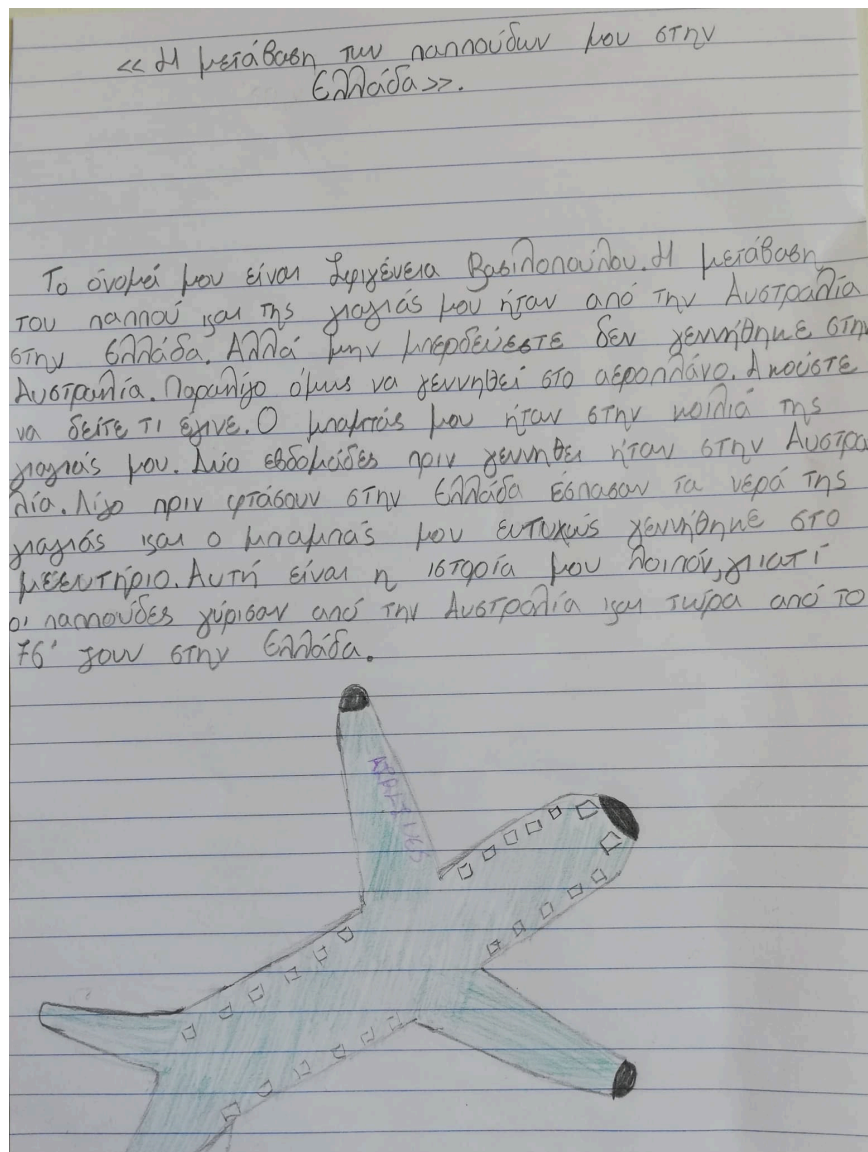 «Η μετάβαση των παππούδων μου στην
Ελλάδα».
Το όνομά μου είναι Ιφιγένεια Βασιλοπούλου. Η μετάβαση
του παππού και της γιαγιάς μου ήταν από την Αυστραλία
στην Ελλάδα. Αλλά μην μπερδεύεστε δεν γεννήθηκε στην
Αυστραλία. Παραλίγο όμως να γεννηθεί στο αεροπλάνο. Ακούστε
να δείτε τι έγινε. Ο μπαμπάς μου ήταν στην κοιλιά της
γιαγιάς μου. Δύο εβδομάδες πριν γεννηθεί ήταν στην Αυστρα
λία. Λίγο πριν φτάσουν στην Ελλάδα έσπασαν τα νερά της
γιαγιάς και ο μπαμπάς μου ευτυχώς γεννήθηκε στο
μεευτήριο. Αυτή είναι η ιστορία μου λοιπόν, γιατί
οι παππούδες γύρισαν από την Αυστραλία και τώρα από το
76' ζουν στην Ελλάδα.